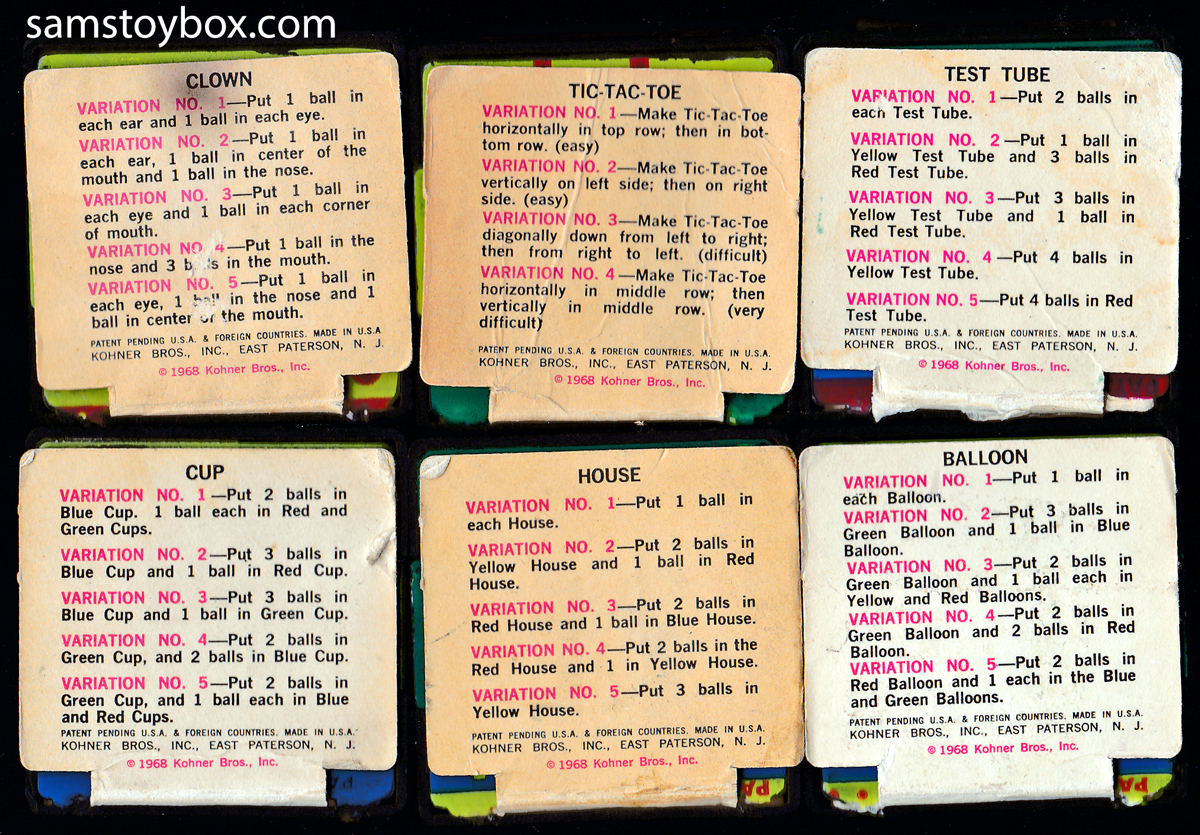 samstoybox.com
CLOWN
VARIATION NO. 1—Put 1 ball in
each ear and 1 ball in each eye.
VARIATION NO. 2—Put 1 ball in
each ear, 1 ball in center of the
mouth and 1 ball in the nose.
VARIATION NO. 3—Put 1 ball in
each eye and 1 ball in each corner
of mouth.
VARIATION NO. 4—Put 1 ball in the
nose and 3 balls in the mouth.
VARIATION NO. 5—Put 1 ball in
each eye, 1 ball in the nose and 1
ball in center of the mouth.
PATENT PENDING U.S.A. & FOREIGN COUNTRIES. MADE IN U.S.A
KOHNER BROS., INC., EAST PATERSON, N. J.
© 1968 Kohner Bros., Inc.
TIC-TAC-TOE
VARIATION NO. 1—Make Tic-Tac-Toe
horizontally in top row; then in bot-
tom row. (easy)
VARIATION NO. 2—Make Tic-Tac-Toe
vertically on left side; then on right
side. (easy)
VARIATION NO. 3—Make Tic-Tac-Toe
diagonally down from left to right;
then from right to left. (difficult)
VARIATION NO. 4—Make Tic-Tac-Toe
horizontally in middle row; then
vertically in middle row. (very
difficult)
PATENT PENDING U.S.A. & FOREIGN COUNTRIES. MADE IN U.S.A.
KOHNER BROS., INC., EAST PATERSON, N. J.
© 1968 Kohner Bros., Inc.
TEST TUBE
VARIATION NO. 1—Put 2 balls in
each Test Tube.
VARIATION NO. 2—Put 1 ball in
Yellow Test Tube and 3 balls in
Red Test Tube.
VARIATION NO. 3—Put 3 balls in
Yellow Test Tube and 1 ball in
Red Test Tube.
VARIATION NO. 4—Put 4 balls in
Yellow Test Tube.
VARIATION NO. 5—Put 4 balls in Red
Test Tube.
PATENT PENDING U.S.A. & FOREIGN COUNTRIES. MADE IN U.S.A.
KOHNER BROS., INC., EAST PATERSON, N. J.
© 1968 Kohner Bros., Inc.
CUP
VARIATION NO. 1—Put 2 balls in
Blue Cup. 1 ball each in Red and
Green Cups.
VARIATION NO. 2—Put 3 balls in
Blue Cup and 1 ball in Red Cup.
VARIATION NO. 3—Put 3 balls in
Blue Cup and 1 ball in Green Cup.
VARIATION NO. 4—Put 2 balls in
Green Cup, and 2 balls in Blue Cup.
VARIATION NO. 5—Put 2 balls in
Green Cup, and 1 ball each in Blue
and Red Cups.
PATENT PENDING U.S.A. & FOREIGN COUNTRIES. MADE IN U.S.A.
KOHNER BROS., INC., EAST PATERSON, N. J.
© 1968 Kohner Bros., Inc.
HOUSE
VARIATION NO. 1—Put 1 ball in
each House.
VARIATION NO. 2—Put 2 balls in
Yellow House and 1 ball in Red
House.
VARIATION NO. 3—Put 2 balls in
Red House and 1 ball in Blue House.
VARIATION NO. 4—Put 2 balls in the
Red House and 1 in Yellow House.
VARIATION NO. 5—Put 3 balls in
Yellow House.
PATENT PENDING U.S.A. & FOREIGN COUNTRIES. MADE IN U.S.A.
KOHNER BROS., INC., EAST PATERSON, N. J.
© 1968 Kohner Bros., Inc.
BALLOON
VARIATION NO. 1—Put 1 ball in
each Balloon.
VARIATION NO. 2—Put 3 balls in
Green Balloon and 1 ball in Blue
Balloon.
VARIATION NO. 3—Put 2 balls in
Green Balloon and 1 ball each in
Yellow and Red Balloons.
VARIATION NO. 4—Put 2 balls in
Green Balloon and 2 balls in Red
Balloon.
VARIATION NO. 5—Put 2 balls in
Red Balloon and 1 each in the Blue
and Green Balloons.
PATENT PENDING U.S.A. & FOREIGN COUNTRIES. MADE IN U.S.A.
KOHNER BROS., INC., EAST PATERSON, N. J.
© 1968 Kohner Bros., Inc.